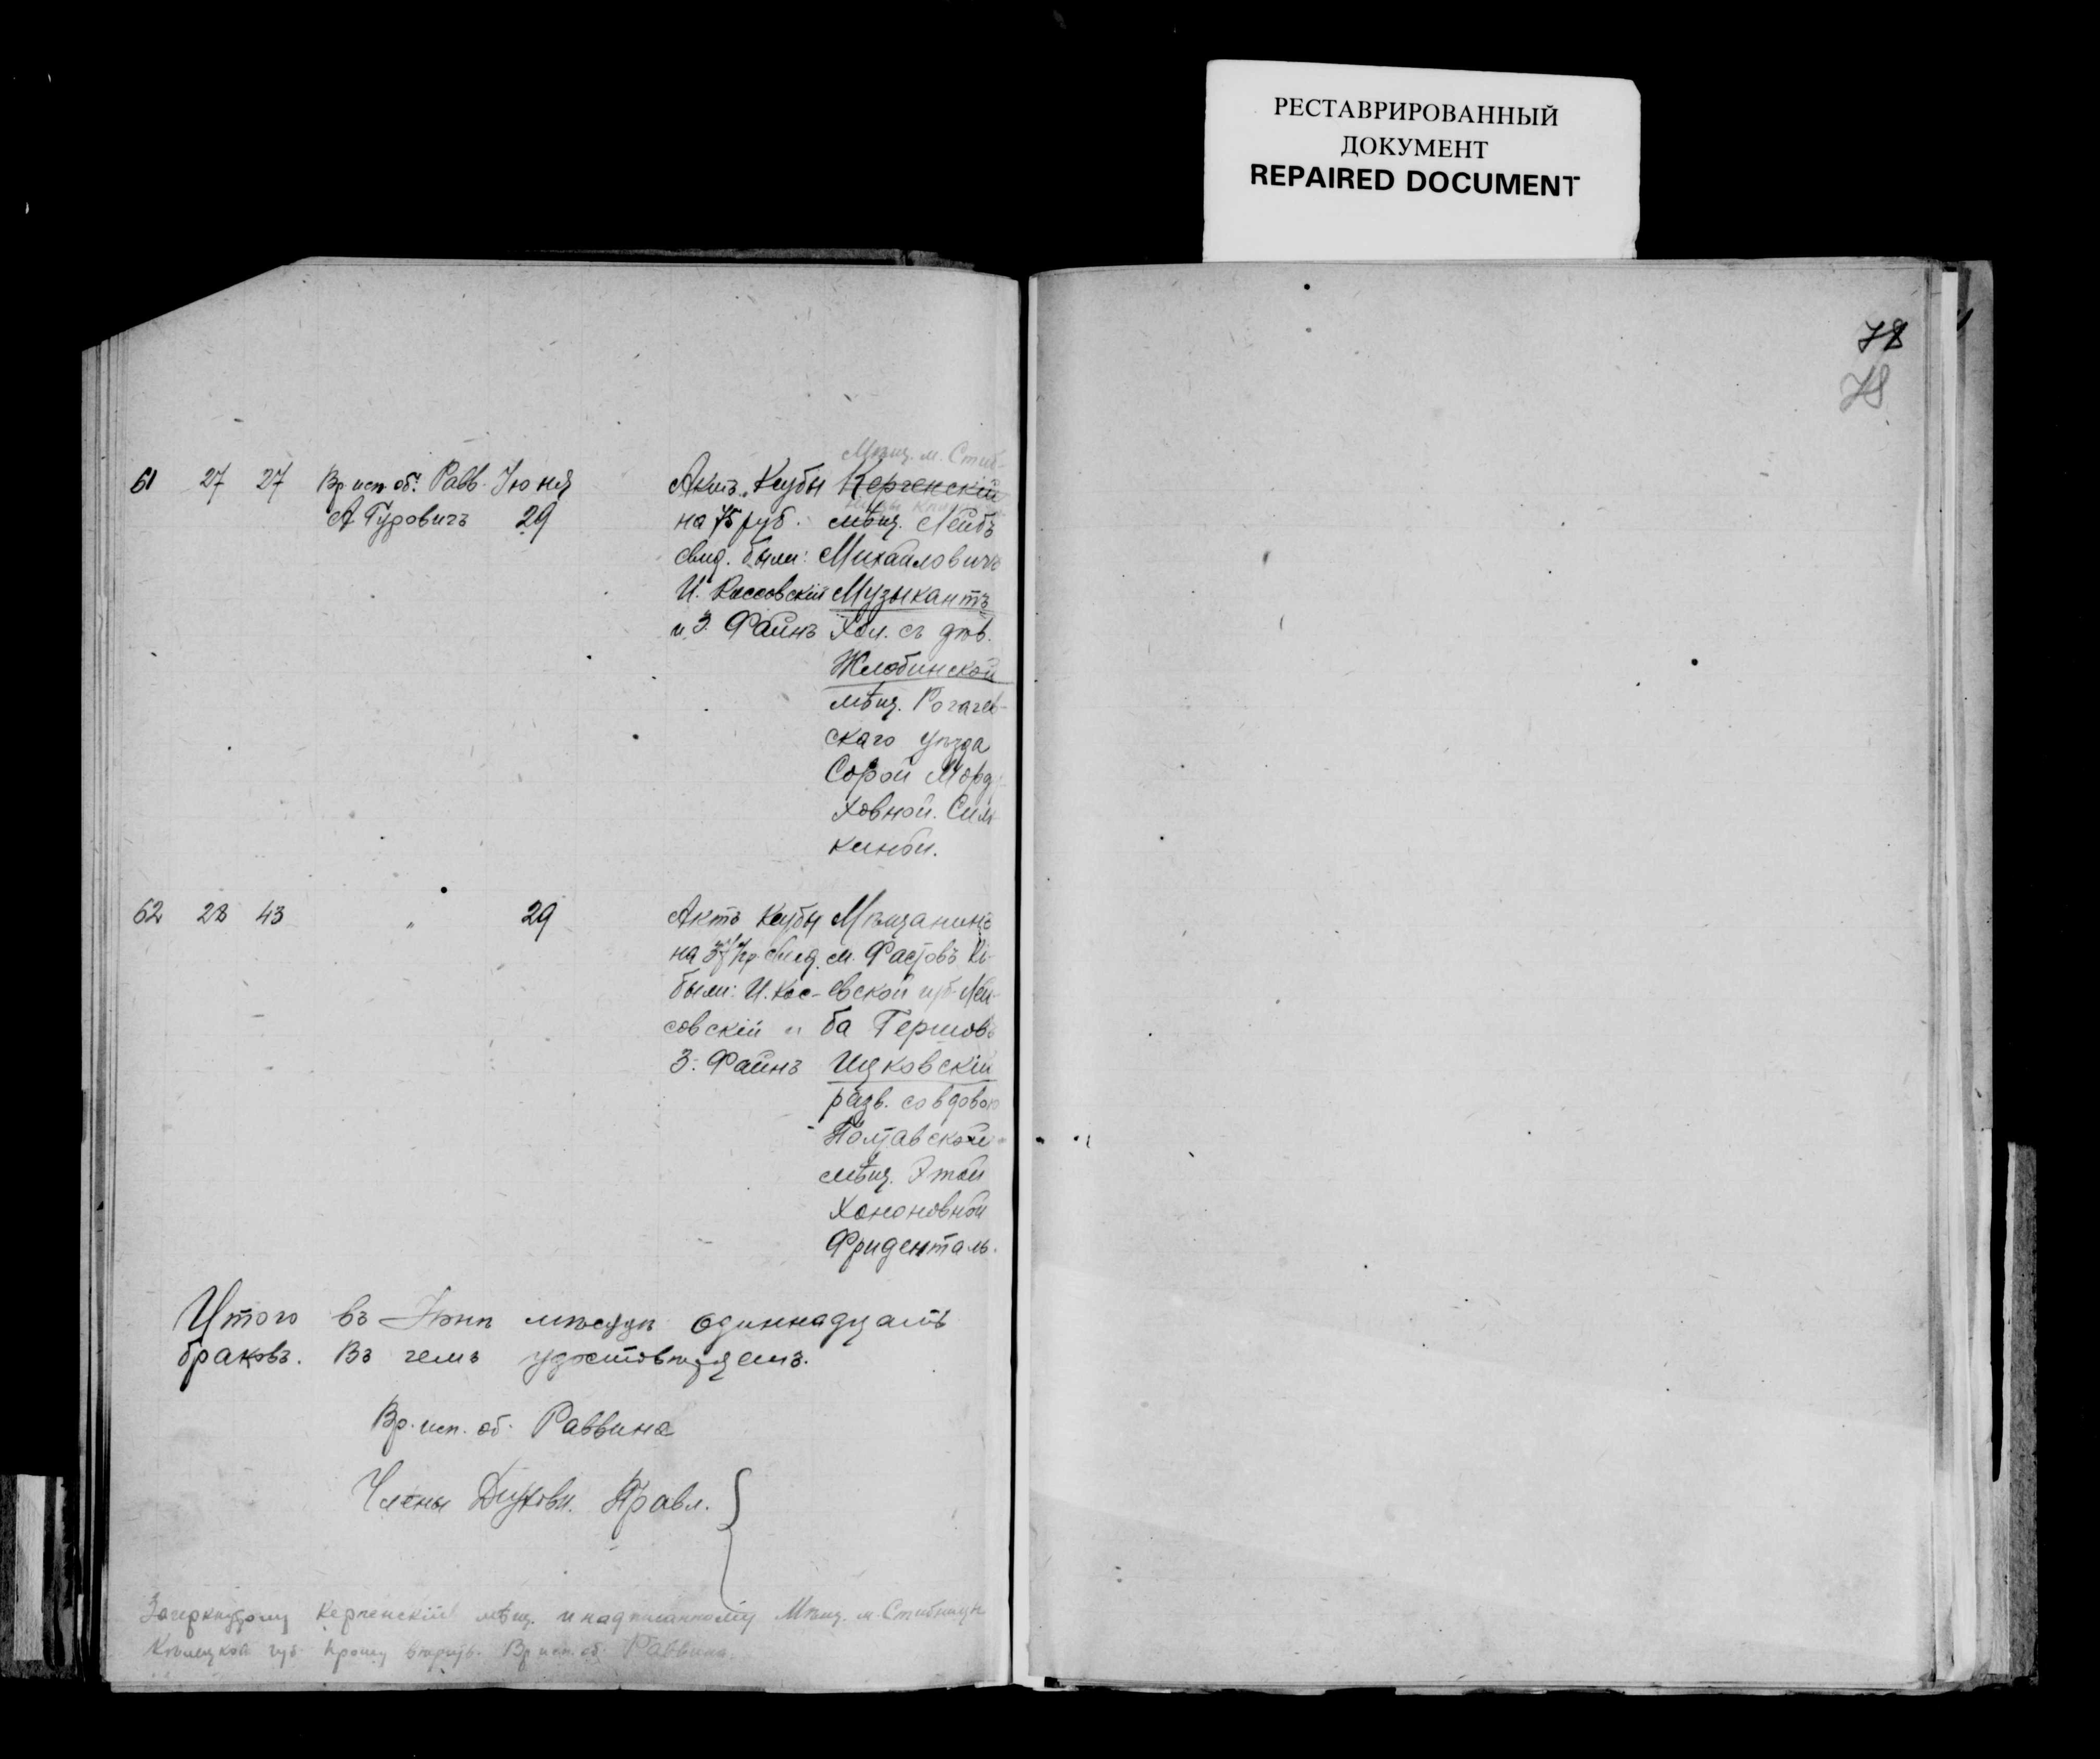 РЕСТАВРИРОВАННЫЙ
ДОКУМЕНТ
REPAIRED DOCUMENT
78
78
Мѣщ. м. Стиб-
61 27 27 Вр. исп. об. Равв. Іюня Актъ Кеубы Керченскій
А Гуровичъ 29 на 75 руб. мѣщ. Лейбъ
свид. были: Михаиловичъ
И. Коссовскій Музыкантъ
и З. Файнъ Хол. съ дѣв.
Жлобинской
мѣщ. Рогачев-
скаго уѣзда
Сорой Морд-
ховной. Сим-
киной.
62 28 43 " 29 Актъ Кеубы Мѣщанинъ
на свид. м. Фастовъ Кі-
были: И. Кос- евской губ. Лей-
совскій и ба Гершовъ
З. Файнъ Ицковскій
разв. со вдовою
Полтавской
мѣщ. Этой
Хононовной
Фриденталь.
Итого въ Іюнѣ мѣсяцѣ одиннадцать
браковъ. Въ чемъ удостовѣряемъ.
Вр. исп. об. Раввина
Члены Духовн. Правл.
Зачеркнутому Керченскій мѣщ. и надписанному Мѣщ. м. Стибницы
губ. прошу вѣрить. Вр. исп. об. Раввина